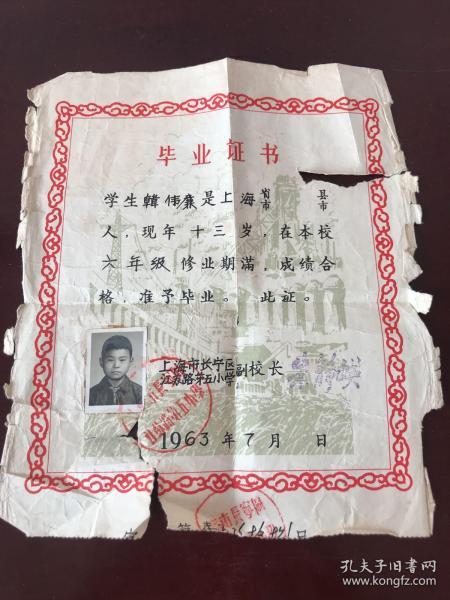 毕业证书
学生韓伟廉是上海省市 县市
人,现年十三岁,在本校
六年级修业期满,成绩合
格,准予毕业。此证。
上海市长宁区
江苏路第五小学副校长
1963年7月 日
孔夫子旧书网
www.kongfz.com